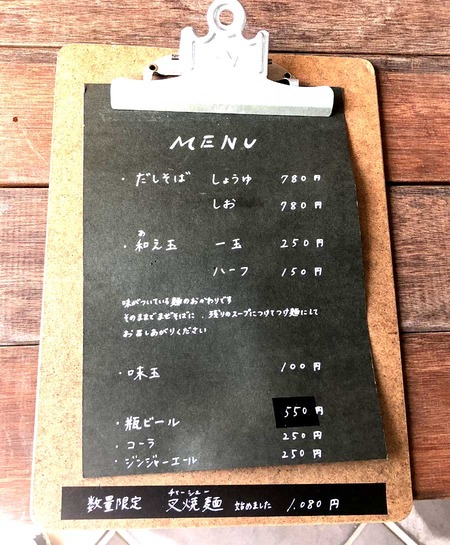 MENU
・だしそば しょうゆ 780円
しお 780円
あ
・和え玉 一玉 250円
ハーフ 150円
味がついている麺のおかわりです
そのままでまぜそばに、残りのスープにつけてつけ麺にして
お召しあがりください
・味玉 100円
・瓶ビール 550円
・コーラ 250円
・ジンジャーエール 250円
チャーシュー
数量限定 叉焼麺 始めました 1,080円